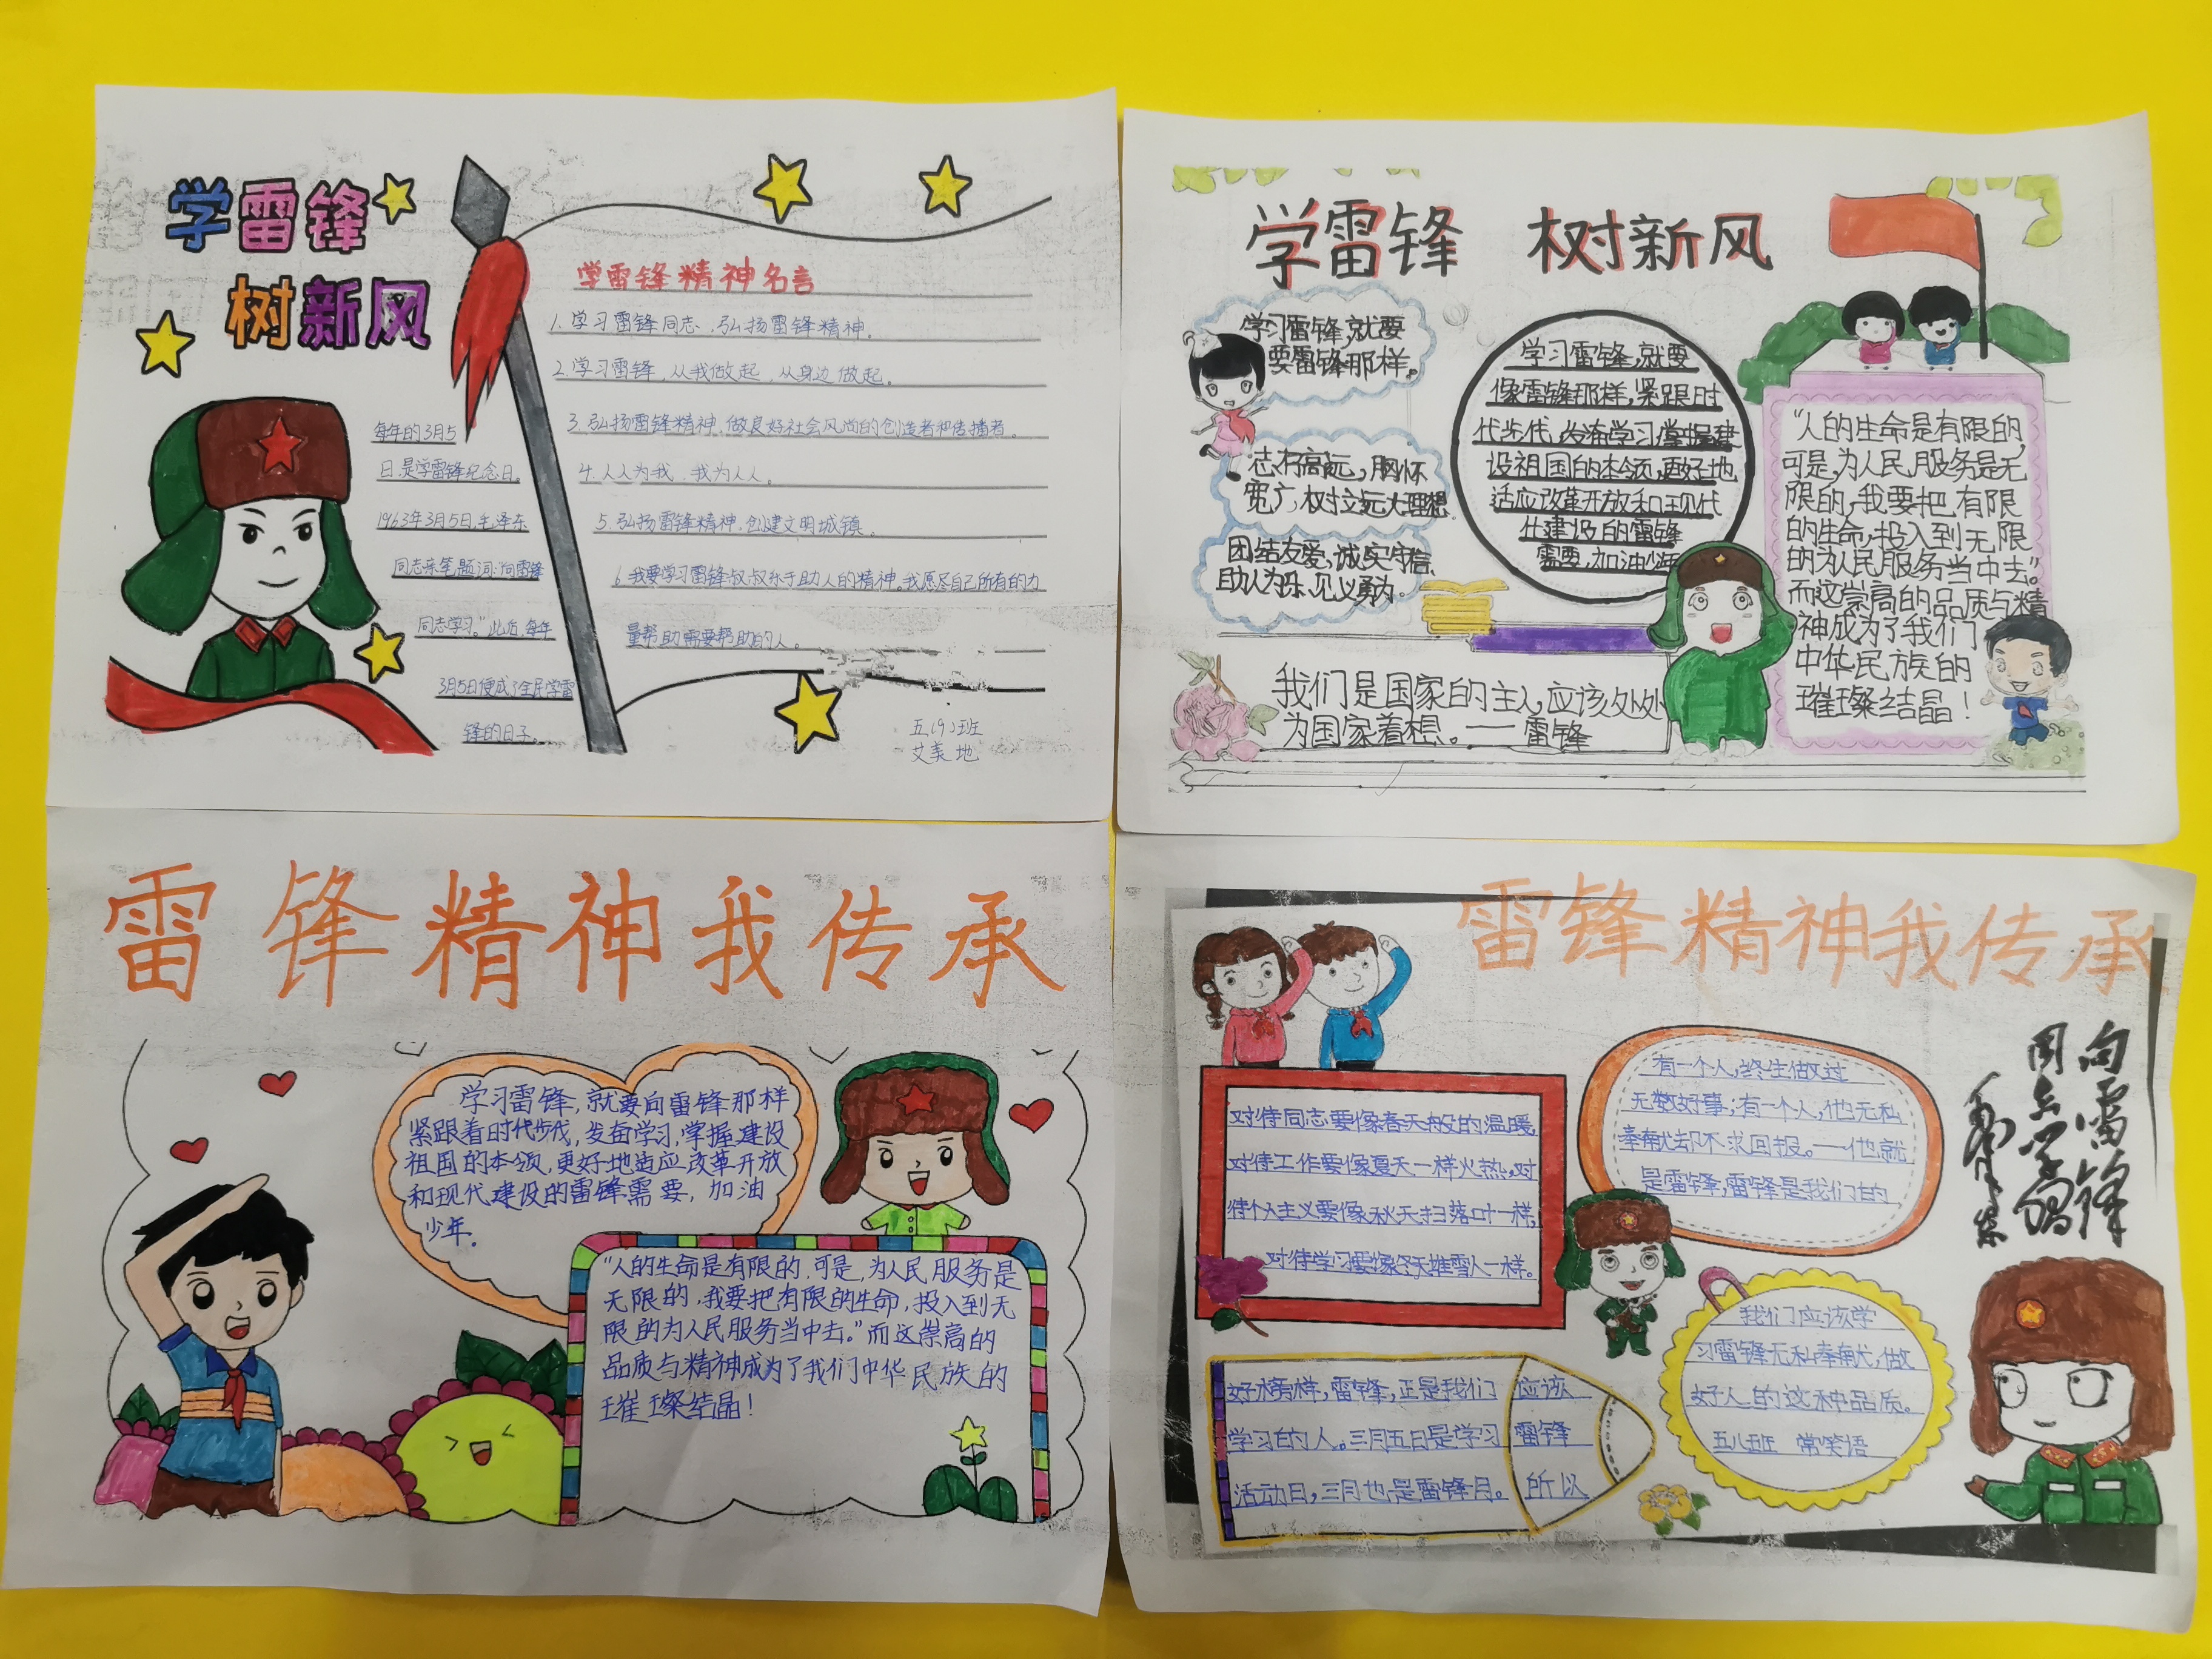 学雷锋
树新风
每年的3月5
日,是学雷锋纪念日。
1963年3月5日,毛泽东
同志亲笔题词:"向雷锋
同志学习。"此后,每年
3月5日便成了全民学雷
锋的日子。
学雷锋精神名言
1.学习雷锋同志,弘扬雷锋精神。
2.学习雷锋,从我做起,从身边做起。
3.弘扬雷锋精神,做良好社会风尚的创造者和传播者。
4.人人为我,我为人人。
5.弘扬雷锋精神,创建文明城镇。
6.我要学习雷锋叔叔乐于助人的精神。我愿尽自己所有的力
量帮助需要帮助的人。
五(9)班
艾美地
学雷锋 树新风
学习雷锋,就要
要雷锋那样。
志存高远,胸怀
宽广,树立远大理想.
团结友爱,诚实守信,
助人为乐,见义勇为.
学习雷锋,就要
像雷锋那样,紧跟时
代步代,发奋学习,掌握建
设祖国的本领,更好地
适应改革开放和现代
代建设的雷锋
需要,加油少年
"人的生命是有限的,
可是,为人民服务是无
限的,我要把有限
的生命,投入到无限
的为人民服务当中去。"
而这崇高的品质与精
神成为了我们
中华民族的
璀璨结晶!
我们是国家的主人,应该处处
为国家着想。——雷锋
雷锋精神我传承
学习雷锋,就要向雷锋那样
紧跟着时代步伐,发奋学习,掌握建设
祖国的本领,更好地适应改革开放
和现代建设的雷锋需要,加油
少年.
"人的生命是有限的,可是,为人民服务是
无限的,我要把有限的生命,投入到无
限的为人民服务当中去。"而这崇高的
品质与精神成为了我们中华民族的
璀璨结晶!
雷锋精神我传承
对待同志要像春天般的温暖,
对待工作要像夏天一样火热。对
待个人主义要像秋天扫落叶一样,
对待学习要像冬天堆雪人一样。
有一个人,终生做过
无数好事;有一个人,他无私
奉献却不求回报。——他就
是雷锋,雷锋是我们的
好榜样,雷锋,正是我们 应该
学习的人。三月五日是学习 雷锋
活动日,三月也是雷锋月。 所以
我们应该学
习雷锋无私奉献,做
好人的这种品质。
五八班 常笑语
向雷锋
同志学习
毛泽东